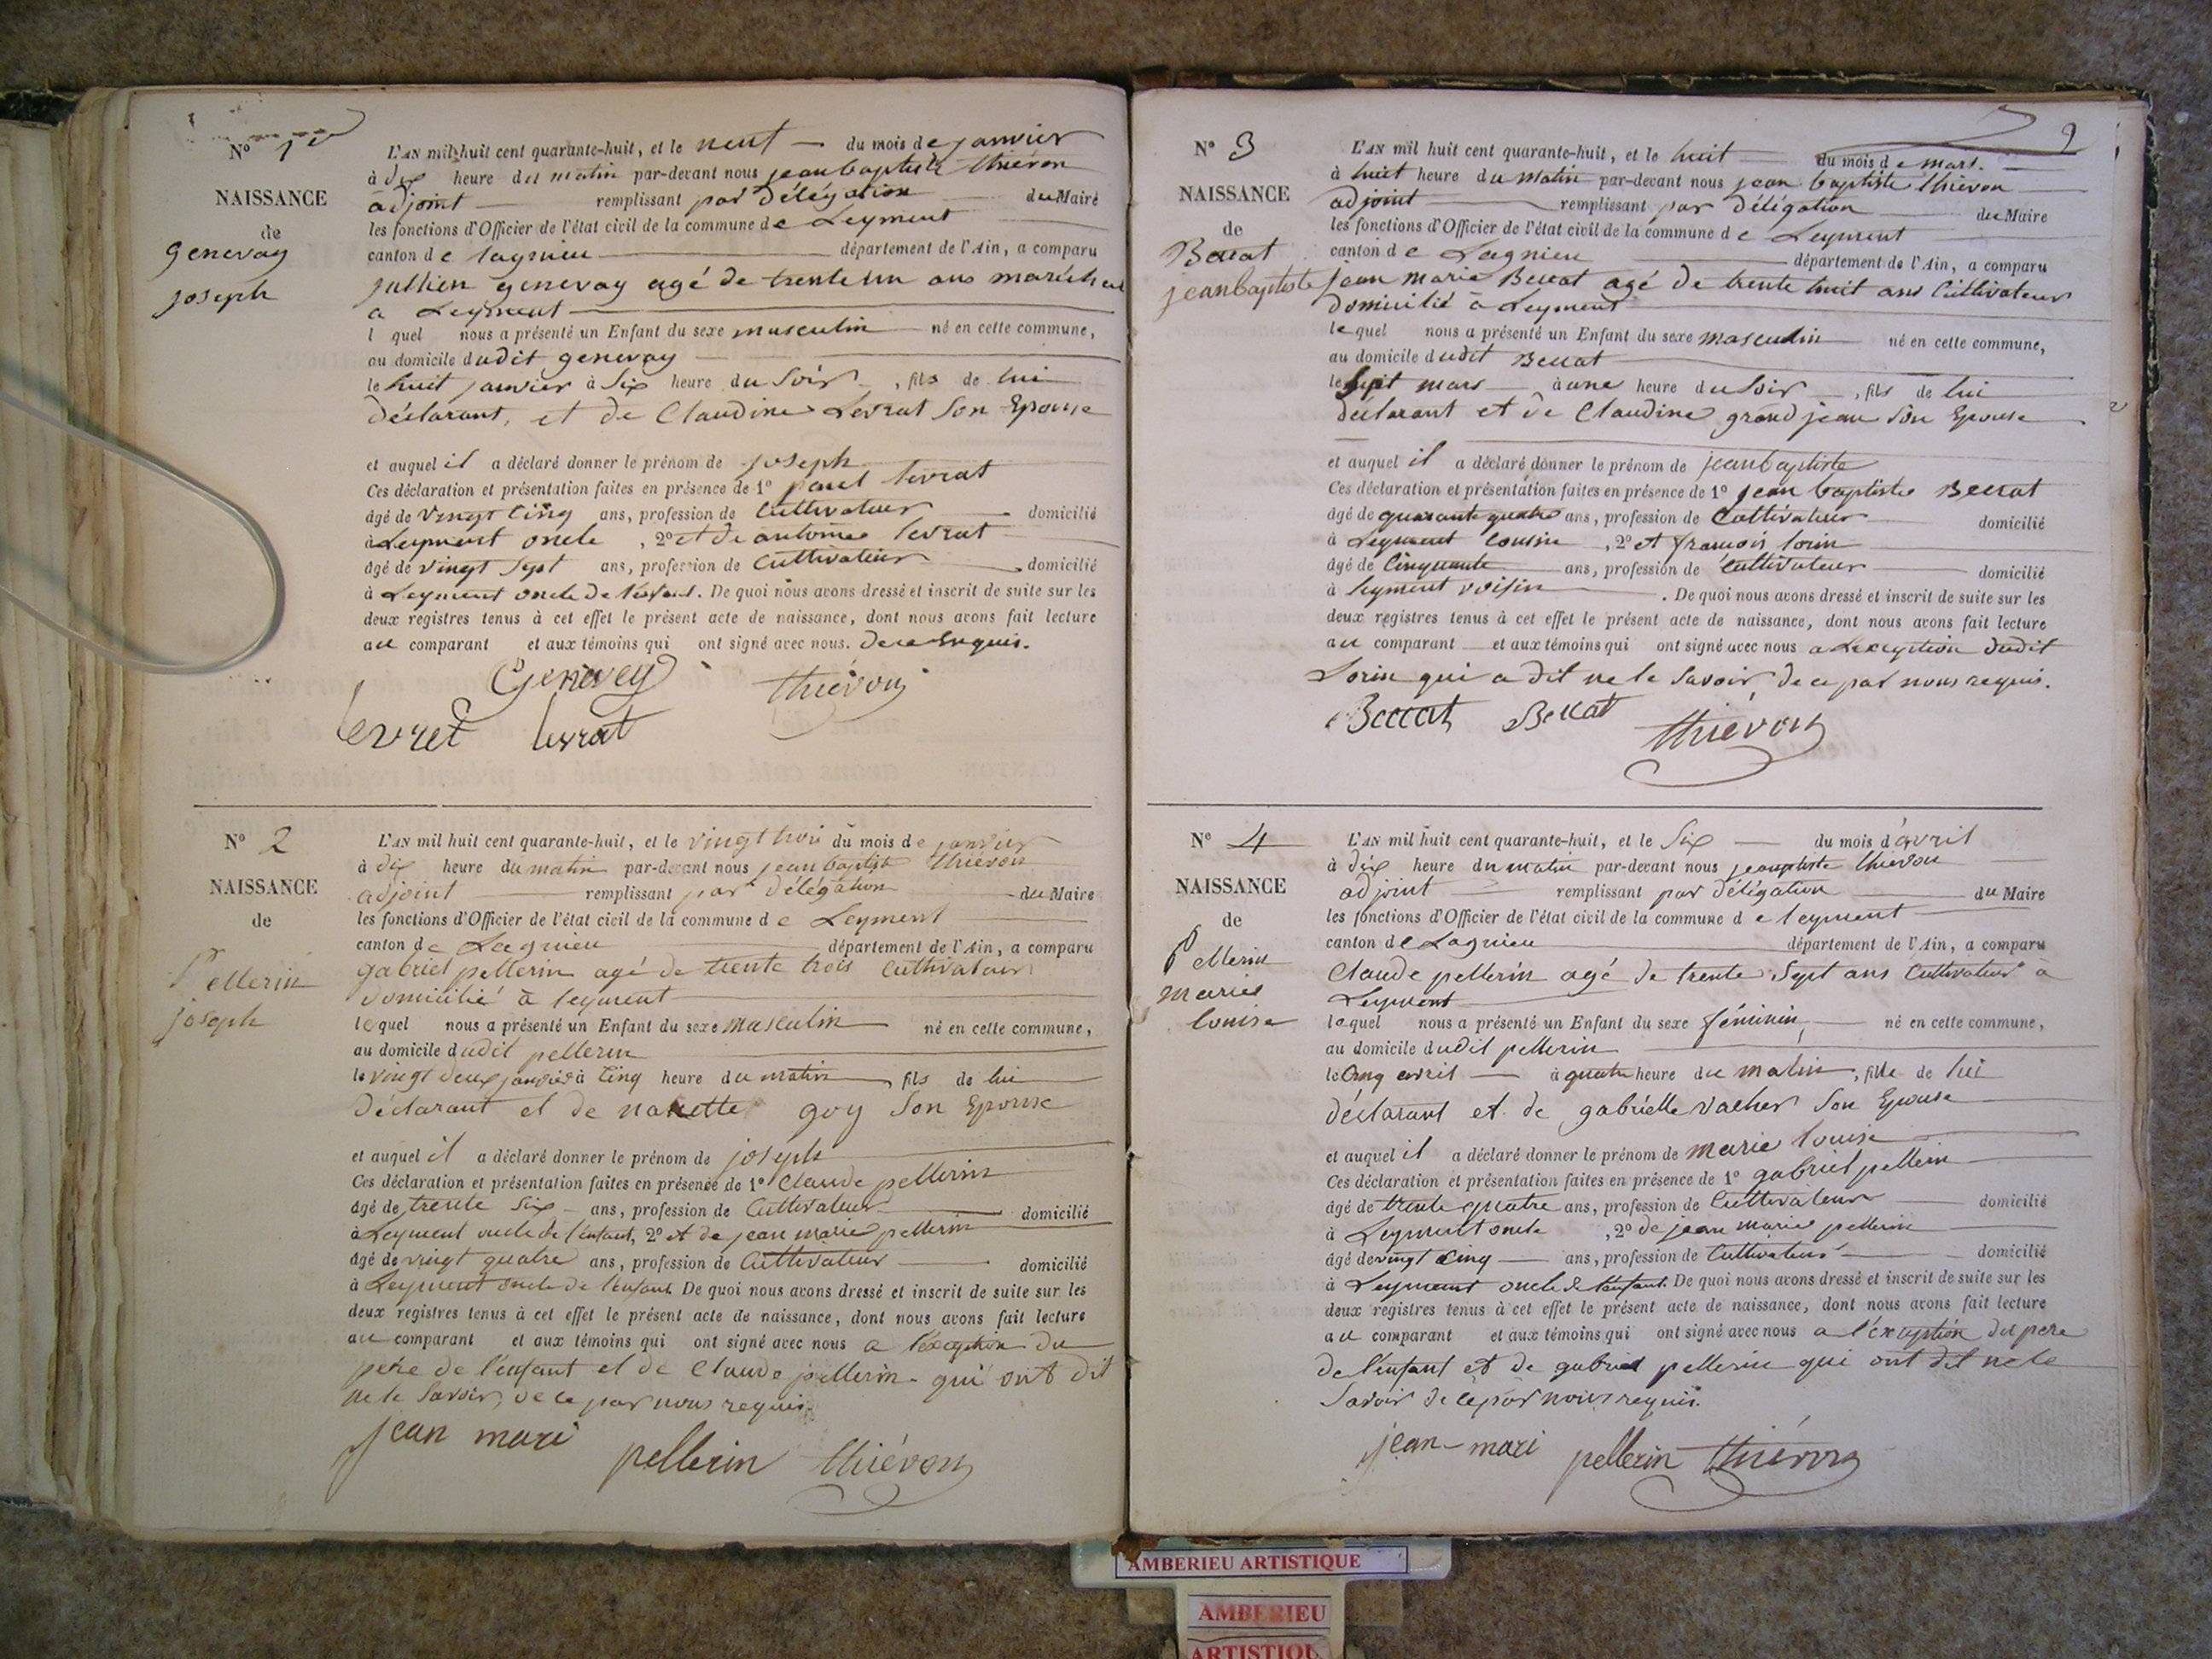 N° 1er
NAISSANCE
de
genevay
joseph
L'AN mil huit cent quarante-huit, et le neuf du mois de janvier
à dix heure du matin par-devant nous jean baptiste thiévon
adjoint remplissant par délégation du Maire
les fonctions d'Officier de l'état civil de la commune de Leyment
canton de lagnieu département de l'Ain, a comparu
jullien genevay agé de trente un ans maréchal
a Leyment
l quel nous a présenté un Enfant du sexe masculin né en cette commune,
au domicile dudit genevay
le huit janvier à six heure du soir, fils de lui
déclarant, et de Claudine Levrat son Epouse
et auquel il a déclaré donner le prénom de joseph
Ces déclaration et présentation faites en présence de 1° paul levrat
âgé de vingt cinq ans, profession de Cultivateur domicilié
à Leyment oncle, 2° et de antoine levrat
âgé de vingt sept ans, profession de Cultivateur domicilié
à Leyment oncle de l'enfant. De quoi nous avons dressé et inscrit de suite sur les
deux registres tenus à cet effet le présent acte de naissance, dont nous avons fait lecture
au comparant et aux témoins qui ont signé avec nous. de ce Enquis.
Genevey thiévon
levret levrat
N° 2
NAISSANCE
de
Pellerin
joseph
L'AN mil huit cent quarante-huit, et le vingt trois du mois de janvier
à dix heure du matin par-devant nous jean baptiste thiévon
adjoint remplissant par délégation du Maire
les fonctions d'Officier de l'état civil de la commune de Leyment
canton de Lagnieu département de l'Ain, a comparu
gabriel pellerin agé de trente trois Cultivateur
domicilié à leyment
lequel nous a présenté un Enfant du sexe masculin né en cette commune,
au domicile dudit pellerin
le vingt deux janvier à cinq heure du matin, fils de lui
Déclarant et de nanette goy son Epouse
et auquel il a déclaré donner le prénom de joseph
Ces déclaration et présentation faites en présence de 1° Claude pellerin
âgé de trente six ans, profession de Cultivateur domicilié
à Leyment oncle de l'enfant, 2° et de jean marie pellerin
âgé de vingt quatre ans, profession de Cultivateur domicilié
à Leyment oncle de l'enfant De quoi nous avons dressé et inscrit de suite sur les
deux registres tenus à cet effet le présent acte de naissance, dont nous avons fait lecture
au comparant et aux témoins qui ont signé avec nous a l'exception du
père de l'enfant et de Claude pellerin qui ont dit
ne le savoir, de ce par nous requis.
jean mari pellerin thiévon
2
N° 3
NAISSANCE
de
Beccat
jean baptiste
L'AN mil huit cent quarante-huit, et le huit du mois de mars.
à huit heure du matin par-devant nous jean baptiste thiévon
adjoint remplissant par délégation du Maire
les fonctions d'Officier de l'état civil de la commune de Leyment
canton de Lagnieu département de l'Ain, a comparu
jean marie Beccat agé de trente huit ans Cultivateur
domicilié à Leyment
lequel nous a présenté un Enfant du sexe masculin né en cette commune,
au domicile dudit Beccat
le sept mars à une heure du soir, fils de lui
déclarant et de Claudine grand jean son Epouse
et auquel il a déclaré donner le prénom de jean baptiste
Ces déclaration et présentation faites en présence de 1° jean baptiste Beccat
âgé de quarante quatre ans, profession de Cultivateur domicilié
à Leyment cousin, 2° et françois lorin
âgé de Cinquante ans, profession de Cultivateur domicilié
à leyment voisin. De quoi nous avons dressé et inscrit de suite sur les
deux registres tenus à cet effet le présent acte de naissance, dont nous avons fait lecture
au comparant et aux témoins qui ont signé avec nous a Lexception dudit
Lorin qui a dit ne le savoir de ce par nous requis.
Beccat Beccat thiévon
N° 4
NAISSANCE
de
Pellerin
marie
louise
L'AN mil huit cent quarante-huit, et le six du mois d'avril
à dix heure du matin par-devant nous jeanptiste thiévon
adjoint remplissant par délégation du Maire
les fonctions d'Officier de l'état civil de la commune de leyment
canton de Lagnieu département de l'Ain, a comparu
Claude pellerin agé de trente sept ans Cultivateur à
Leyment
lequel nous a présenté un Enfant du sexe féminin, né en cette commune,
au domicile dudit pellerin
le cinq avril à quatre heure du matin, fille de lui
déclarant et de gabrielle vacher son Epouse
et auquel il a déclaré donner le prénom de marie louise
Ces déclaration et présentation faites en présence de 1° gabriel pellerin
âgé de trente quatre ans, profession de Cultivateur domicilié
à Leyment oncle, 2° de jean marie pellerin
âgé de vingt cinq ans, profession de Cultivateur domicilié
à Leyment oncle de l'enfant. De quoi nous avons dressé et inscrit de suite sur les
deux registres tenus à cet effet le présent acte de naissance, dont nous avons fait lecture
au comparant et aux témoins qui ont signé avec nous a l'exception du pere
de l'enfant et de gabriel pellerin qui ont dit ne le
savoir de ce par nous requis.
jean-mari pellerin thiévon
AMBERIEU ARTISTIQUE
AMBERIEU
ARTISTIQU